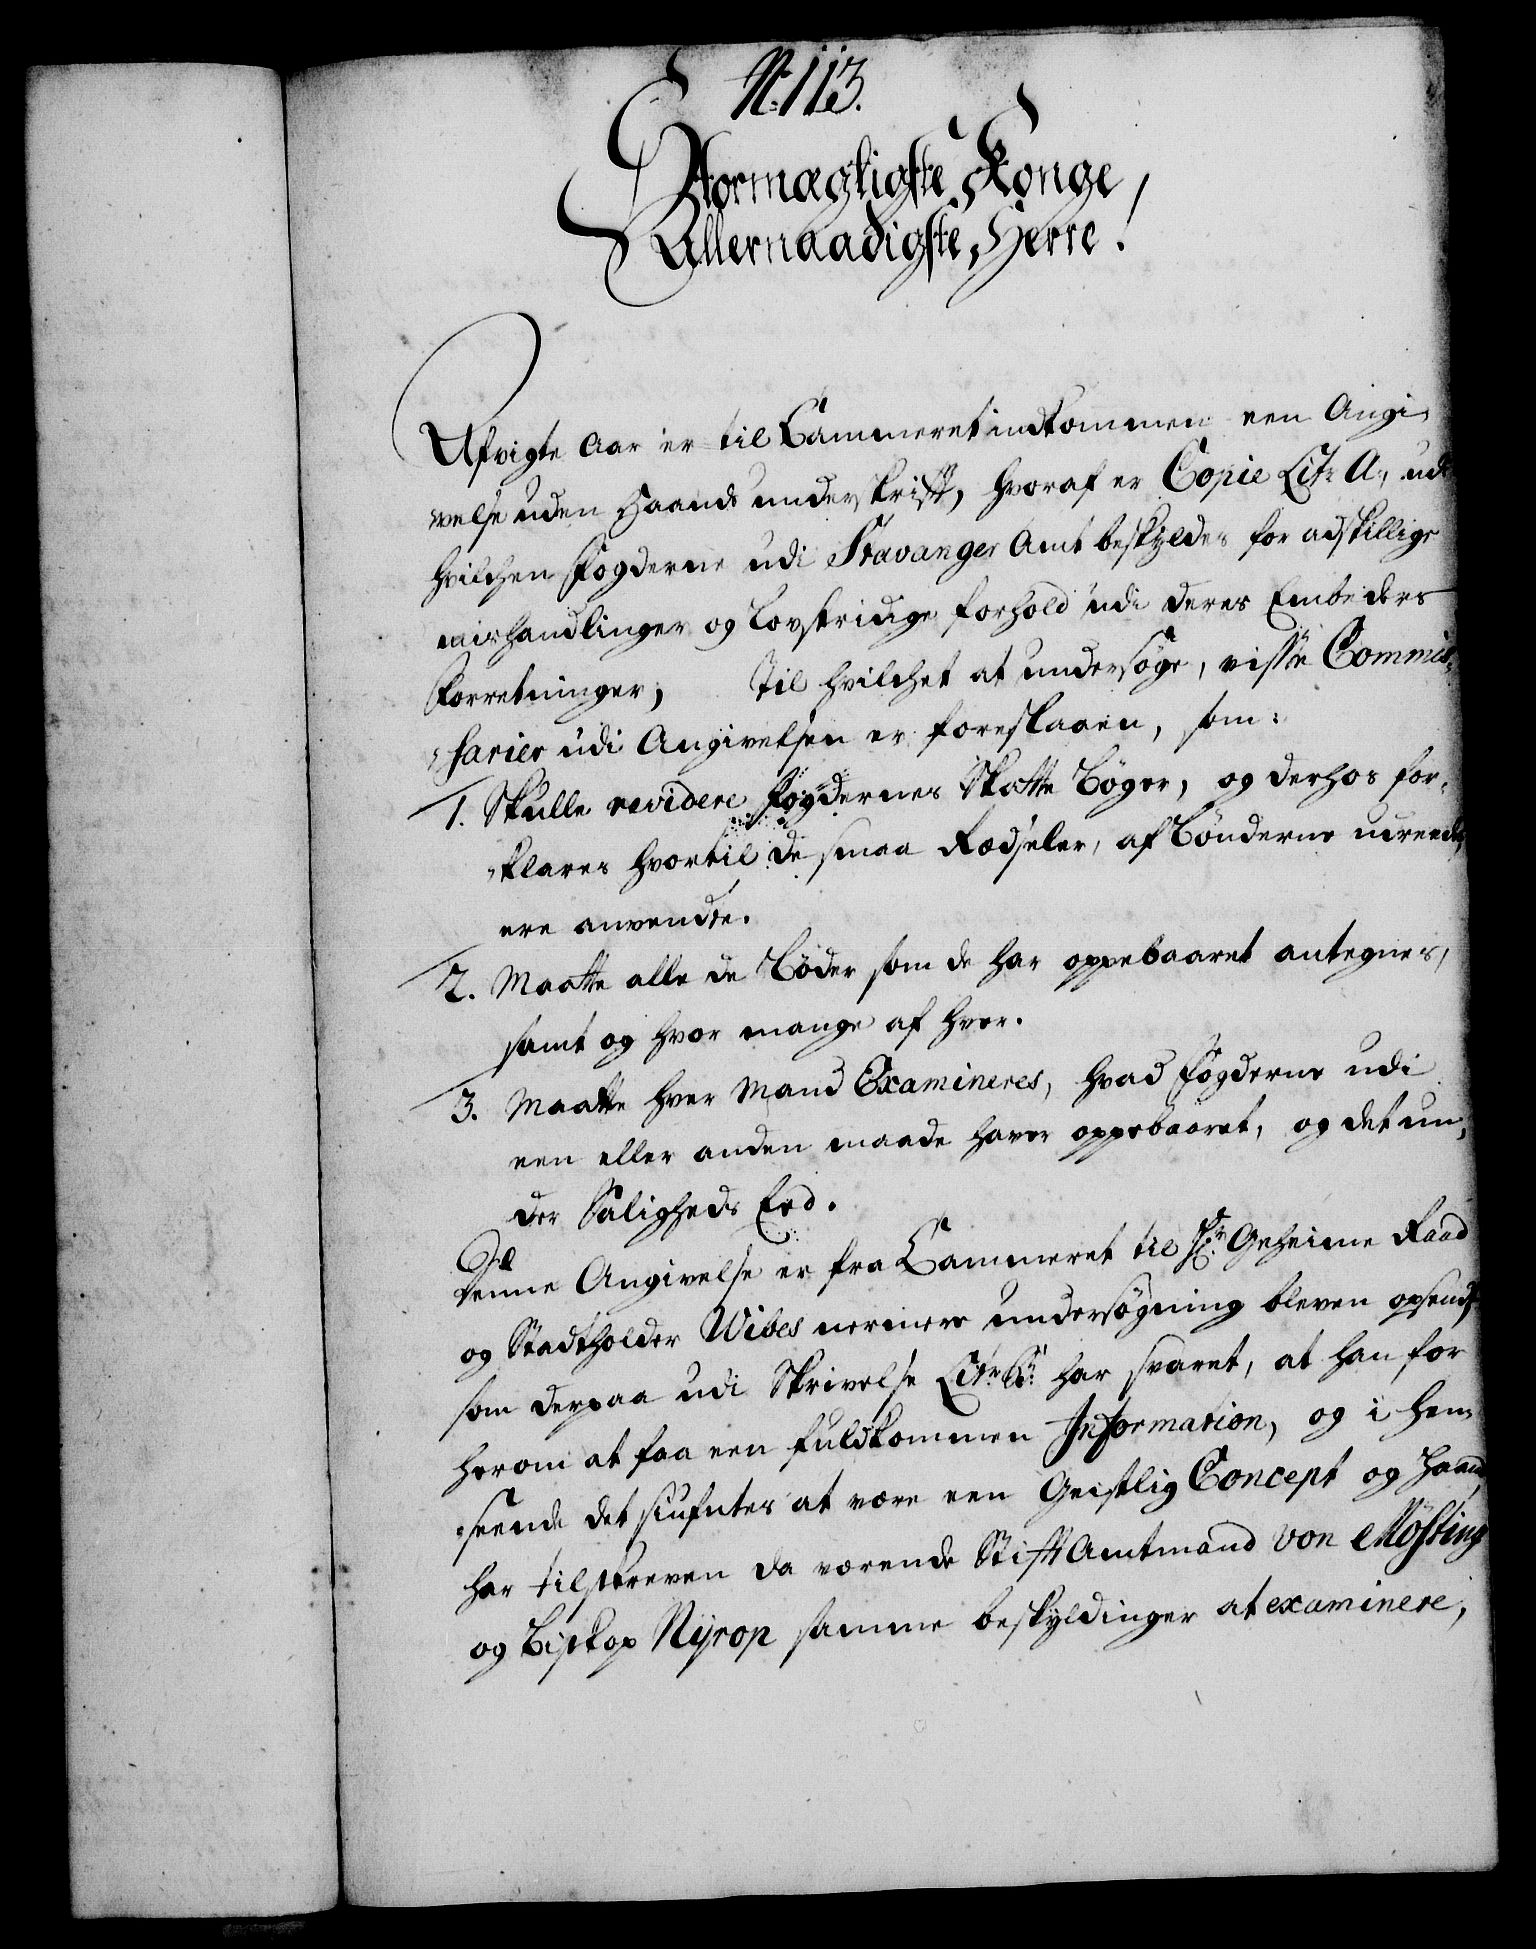 N: 113.
Stormægtigste Konge,
Allernaadigste Herre!
Afvigte Aar er til Cammeret indkommen een Angi-
velse uden Haands underskrifft, hvoraf er Copie Litr: A:, udi
hvilchen Fogderne udi Stavanger Amt beskyldes for adskillige
mishandlinger og Lovstridige forhold udi deres Embeders
Forretninger, Til hvilchet at undersøge, visse Commis-
sarier udi Angivelsen er foreslaaen, som:
1. Skulle revidere Fogdernes Skatte Bøger, og derhos for-
klares hvortil de smaa Rædseler, af Bønderne udreedt,
ere anvendte.
2. Maatte alle de Bøder som de har oppebaaret antegnes,
samt og hvor mange af hver.
3. Maatte hver Mand Examineres, hvad Fogderne udi
een eller anden maade haver oppebaaret, og det un-
der Saligheds Eed.
Denne Angivelse er fra Cammeret til Hr: Geheime Raad
og Stadtholder Wibes nermere undersøgning bleven opsendt,
som derpaa udi Skrivelse Litr: B: har svaret, at han for
herom at faa een fuldkommen Information, og i hen-
seende det siufntes at være een Geistlig Concept og Haand,
har tilskreven da værende Stifft Amtmand von Møsting
og Biskop Nyrop samme beskyldinger at examinere,